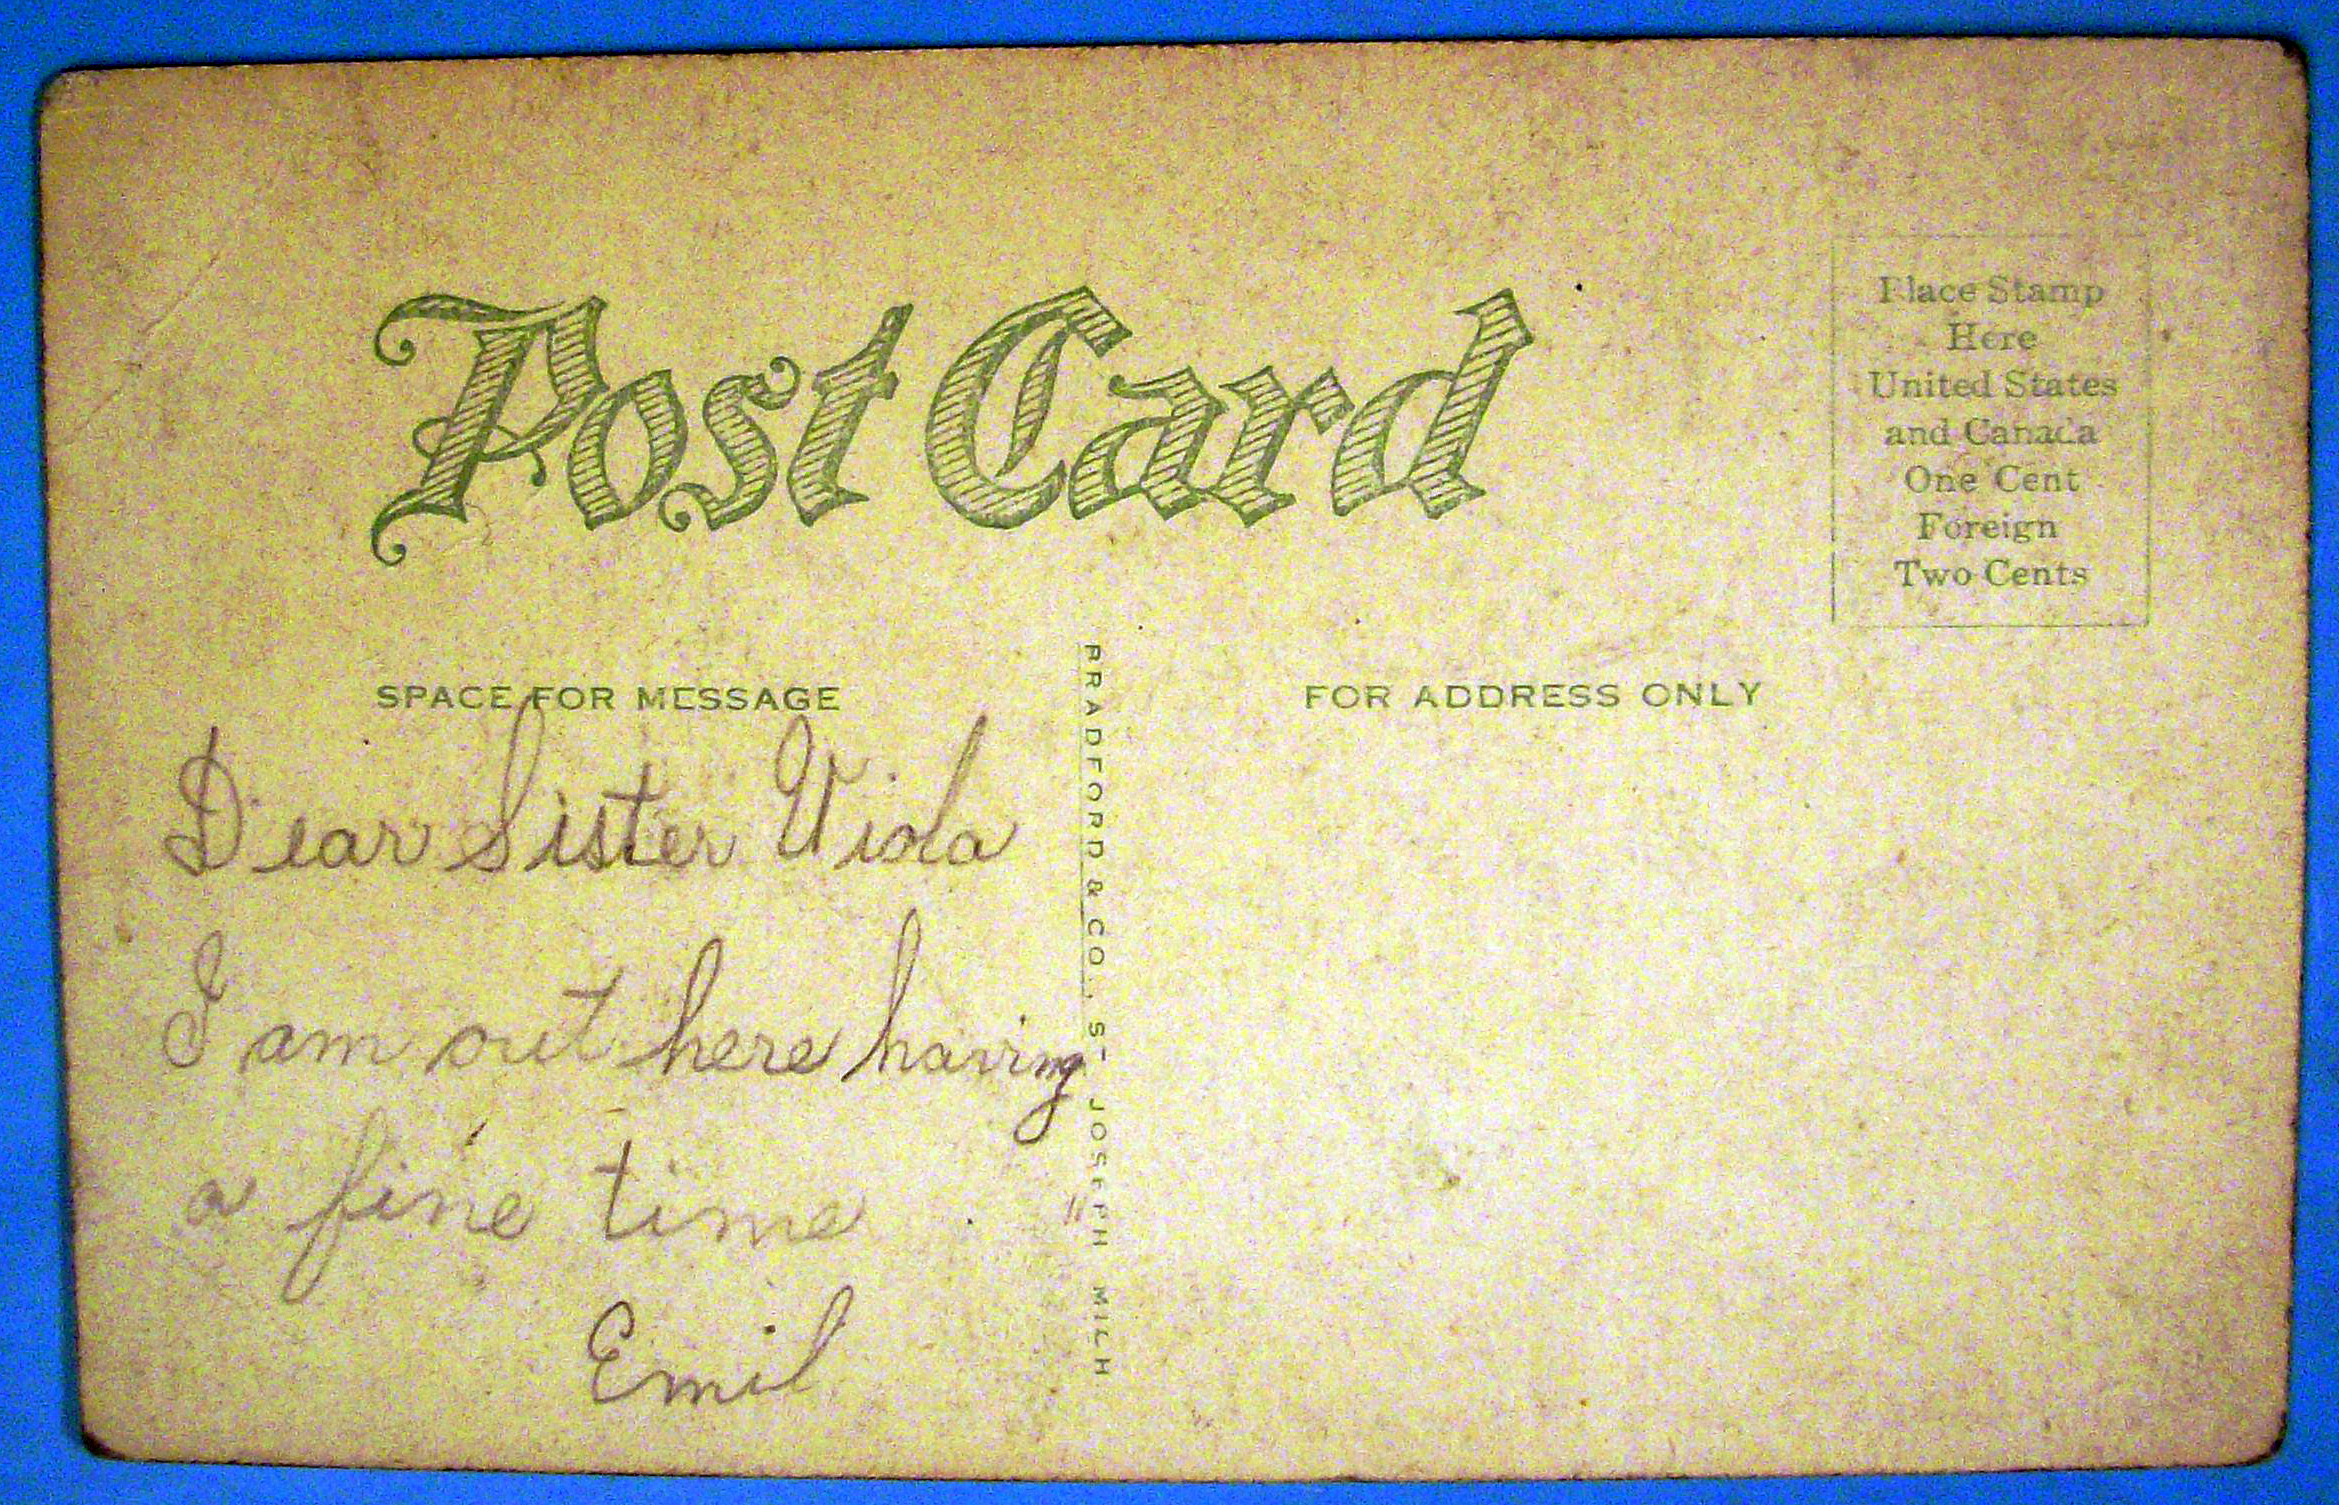 Post Card
Place Stamp
Here
United States
and Canada
One Cent
Foreign
Two Cents
SPACE FOR MESSAGE
FOR ADDRESS ONLY
BRADFORD & CO., ST. JOSEPH MICH
Dear Sister Viola
I am out here having
a fine time
Emil